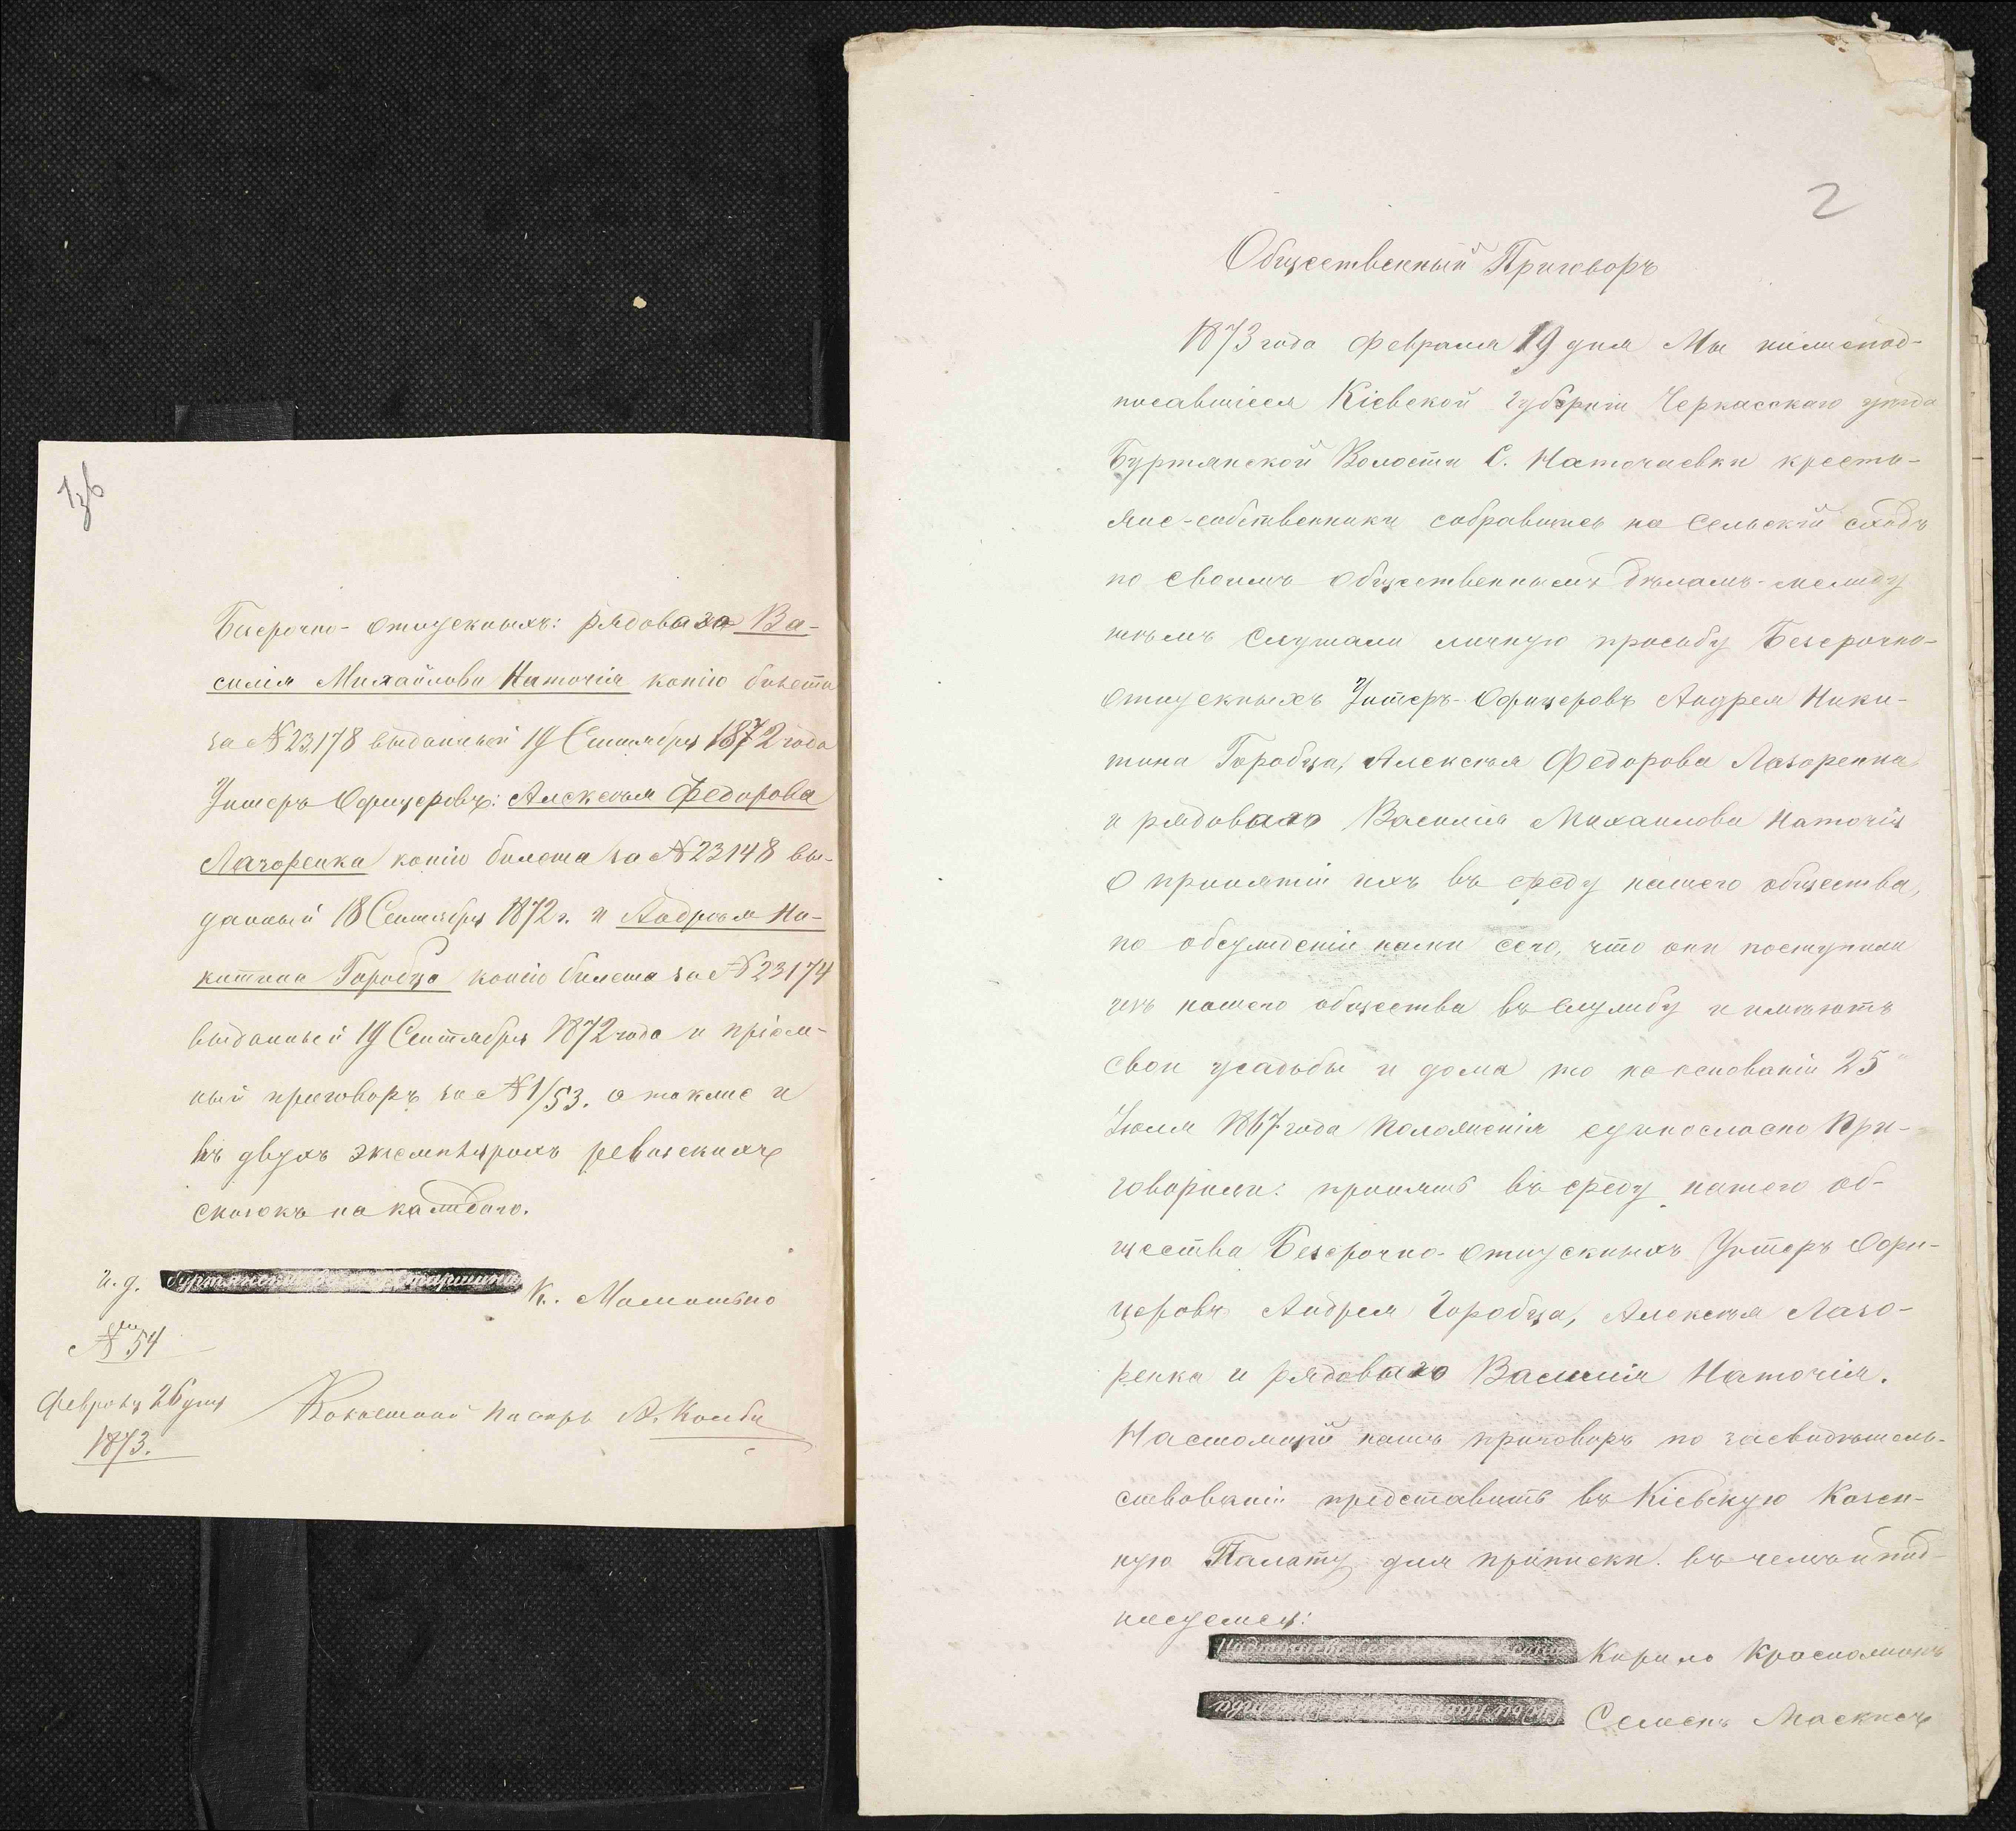 1зв
Безсрочно-отпускныхъ: рядоваго Ва-
силія Михайлова Наточія копію билета
за № 23,178 выданный 19 Сентября 1872 года
Унтеръ Офицеровъ: Алексѣя Федорова
Лазоренка копію билета за № 23148 вы-
данный 18 Сентября 1872 г. и Андрѣя Ни-
китина Горобца копію билета за № 23174
выданный 19 Сентября 1872 года и пріем-
ный приговоръ за № 1/53. а также и
въ двухъ экземплярахъ ревизскихъ
сказокъ на каждаго.
И. д. Буртянский Старшины К.
№ 54
Февраля 26 дня
1873.
Волостной Писарь
2
Общественный Приговоръ
1873 года Февраля 19 дня Мы нижепод-
писавшіеся Кіевской Губерніи Черкасскаго уѣзда
Буртянской Волости С. Наточаевки кресть-
яне-собственники собравшись на Сельскій сходъ
по своимъ общественнымъ дѣламъ-между
чѣмъ Слушали личную просьбу Безсрочно-
отпускныхъ Унтеръ-Офицеровъ Андрея Ники-
тина Горобца, Алексѣя Федорова Лазоренка
и рядоваго Василія Михайлова Наточія
о принятіи ихъ въ среду нашего общества,
по обсужденіи нами сего, что они поступили
изъ нашего общества въ Службу и имѣютъ
свои усадьбы и дома то на основаніи 25
Іюля 1867 года Положенія единогласно При-
говорили: принять въ среду нашего об-
щества Безсрочно-отпускныхъ Унтеръ Офи-
церовъ Андрея Горобца, Алексѣя Лазо-
ренка и рядоваго Василія Наточія.
Настоящій нашъ приговоръ по засвидѣтель-
ствованіи представить въ Кіевскую Казен-
ную Палату для приписки. въ чемъ и под-
писуемся:
Кирило
Семенъ